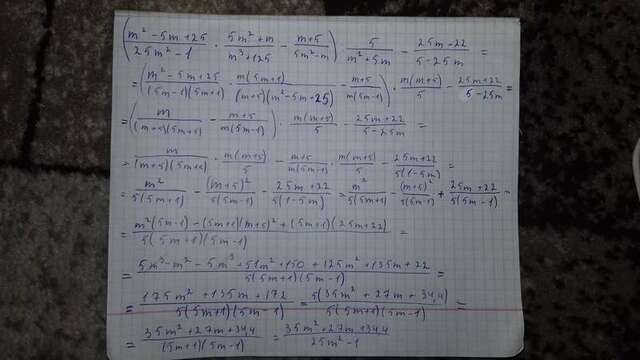 (m² - 5m + 25 / 25m² - 1 · 5m² + m / m³ + 125 - m+5 / 5m² - m) · 5 / m² + 5m - 25m - 22 / 5 - 25m =
= (m² - 5m + 25 / (5m-1)(5m+1) · m(5m+1) / (m+5)(m² - 5m - 25) - m+5 / m(5m-1)) · m(m+5) / 5 - 25m+22 / 5 - 25m =
= (m / (m-5)(5m+5) - m+5 / m(5m-1)) · m(m+5) / 5 - 25m+22 / 5 - 25m =
= m / (m+5)(5m+5) · m(m+5) / 5 - m+5 / m(5m-1) · m(m+5) / 5 - 25m+22 / 5(1-5m) =
= m² / 5(5m+1) - (m+5)² / 5(5m-1) - 25m+22 / 5(1-5m) = m² / 5(5m+1) - (m+5)² / 5(5m-1) + 25m+22 / 5(5m-1) =
= m²(5m-1) - (5m+1)(m+5)² + (5m+1)(25m+22) / 5(5m+1)(5m-1) =
= 5m³ - m² - 5m³ + 51m² + 150 + 125m² + 135m + 22 / 5(5m+1)(5m-1) =
= 175m² + 135m + 172 / 5(5m+1)(5m-1) = 5(35m² + 27m + 34,4) / 5(5m+1)(5m-1) =
= 35m² + 27m + 34,4 / (5m+1)(5m-1) = 35m² + 27m + 34,4 / 25m² - 1